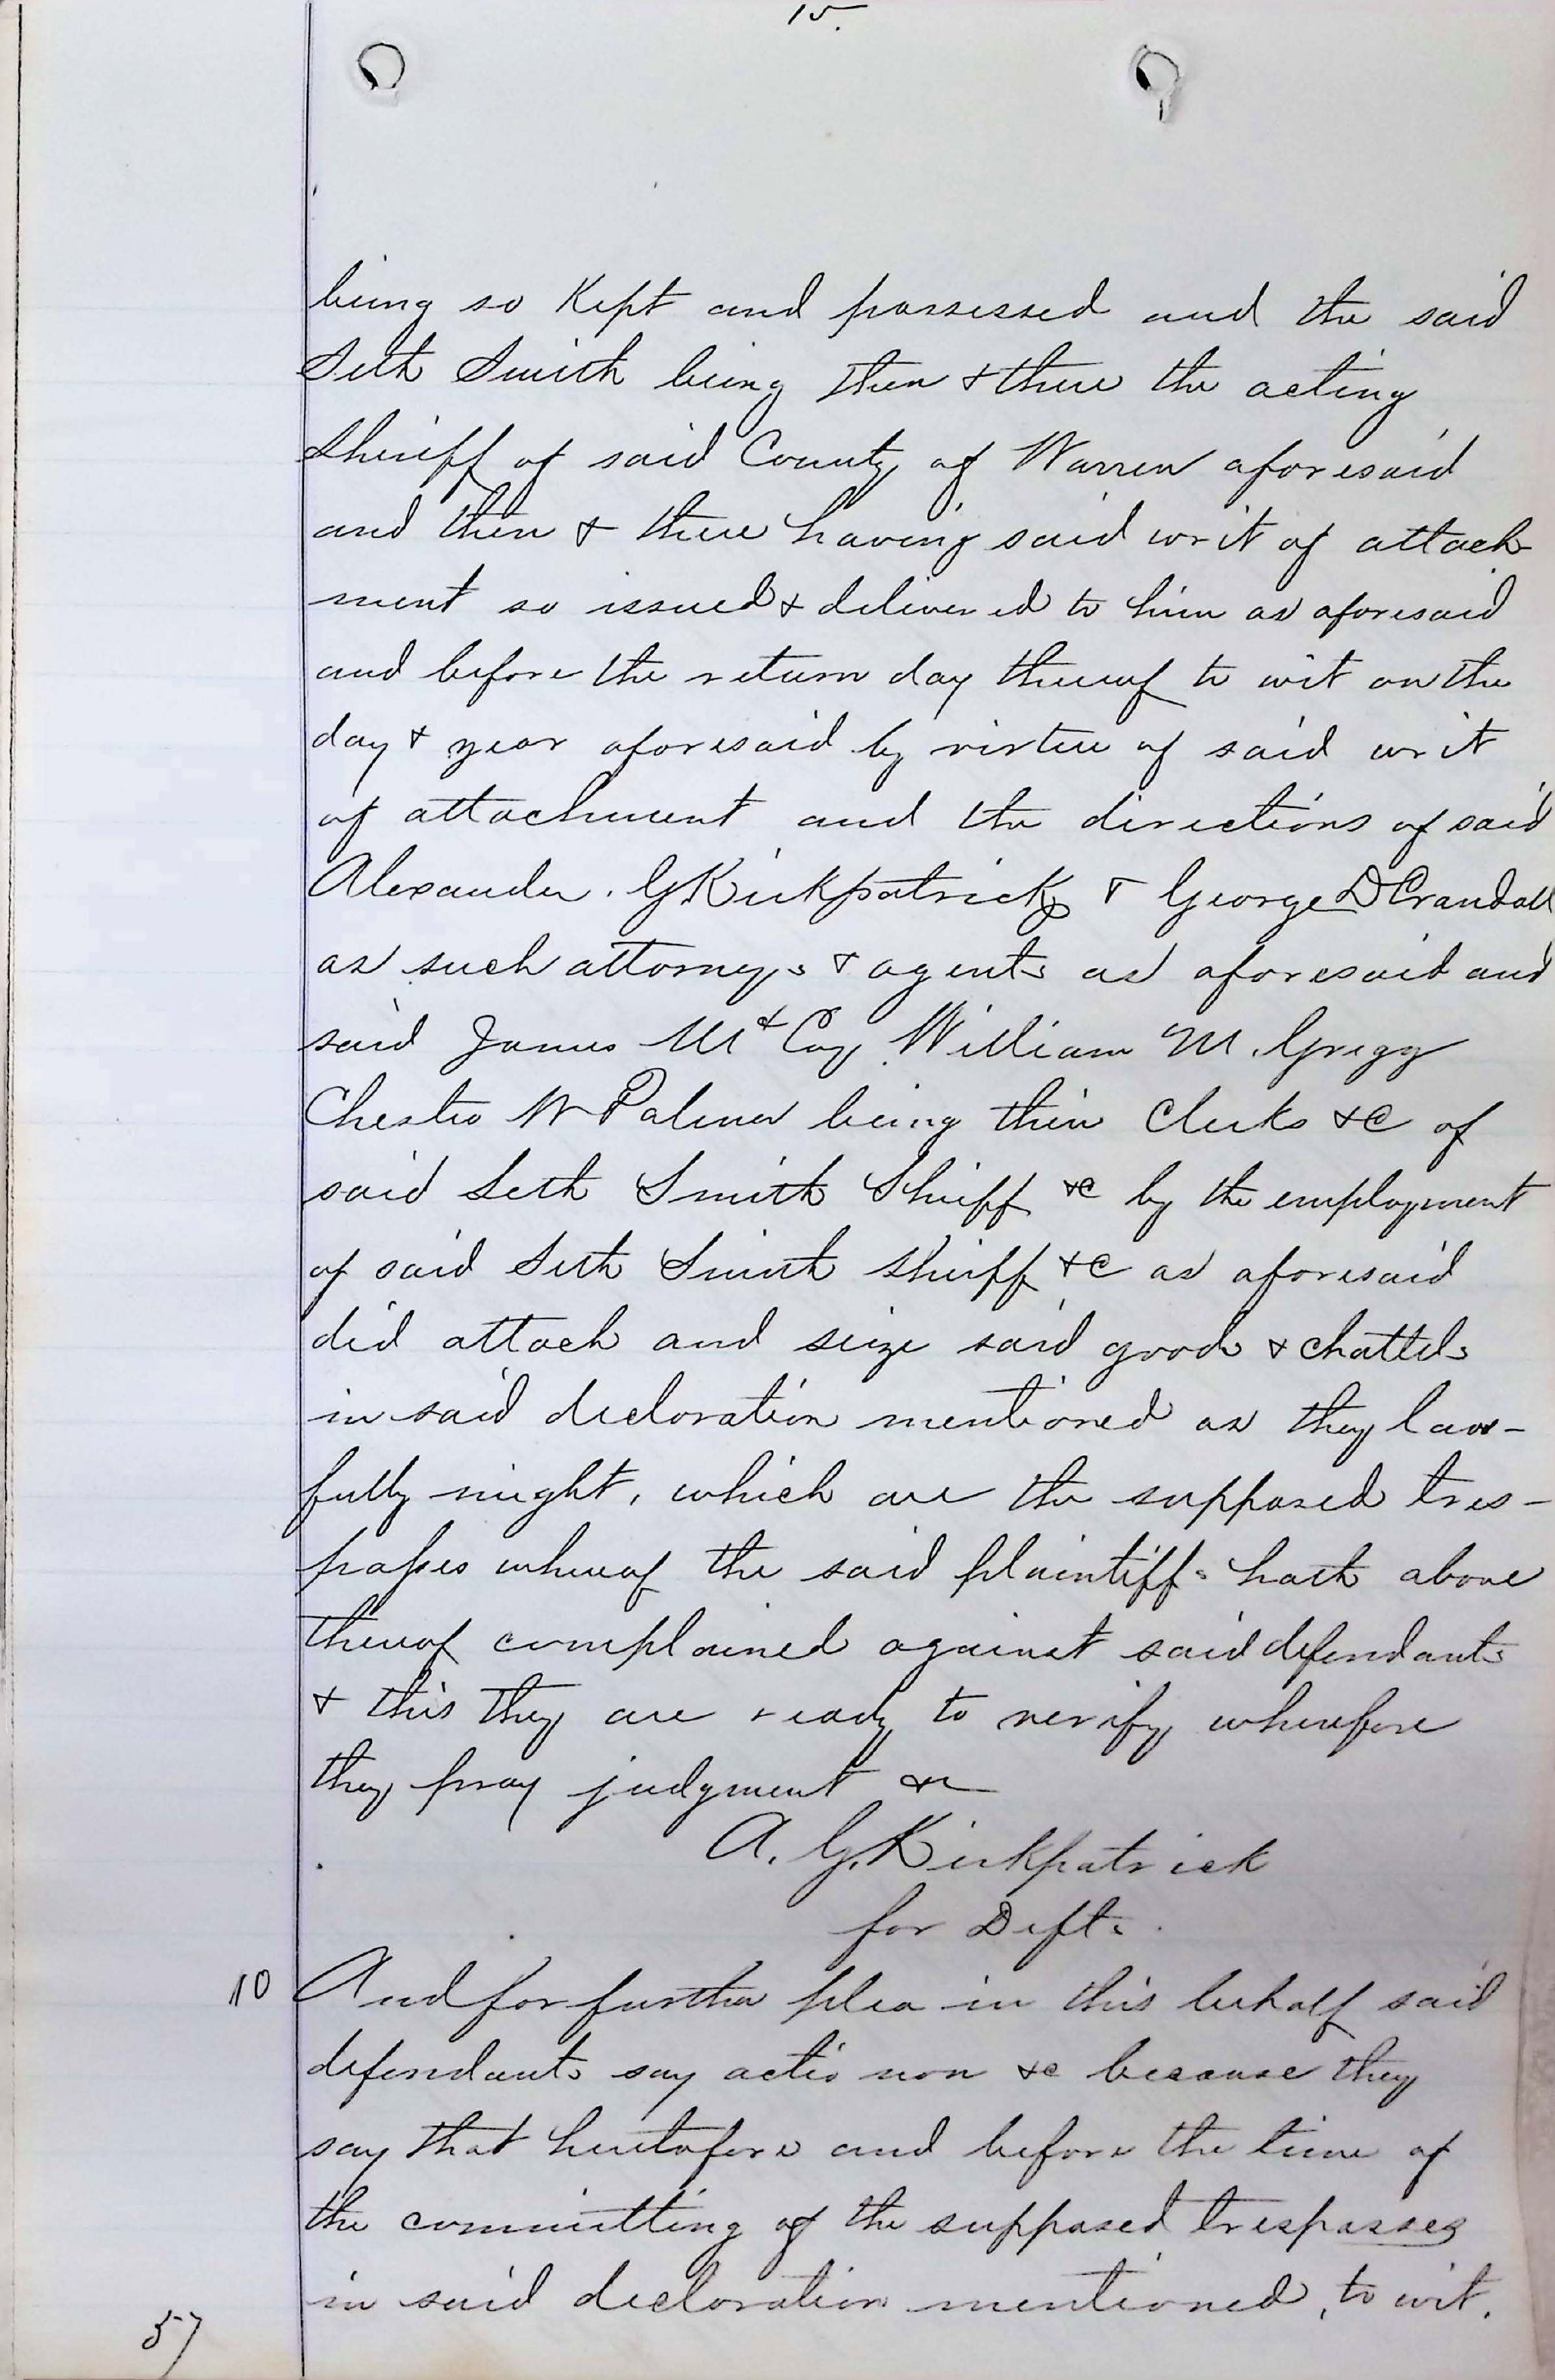 15.
being so Kept and possessed and the said
Seth Smith being then & there the acting
Sheriff of said County of Warren aforesaid
and then & there having said writ of attach
ment so issued & delivered to him as aforesaid
and before the return day thereof to wit on the
day & year aforesaid by virtue of said writ
of attachment and the directions of said
Alexander. G Kirkpatrick & George D Crandall
as such attorneys & agents as aforesaid and
said James McCoy William M. Gregg
Chester W Palmer being then Clerks &c of
said Seth Smith Sheriff &c by the employment
of said Seth Smith Sheriff &c as aforesaid
did attach and seize said goods & chattels
in said decloration mentioned as they law-
fully might, which are the supposed tres-
passes whereof the said plaintiffs hath above
thereof complained against said defendants
& this they are ready to verify wherefore
they pray judgment &c
A. G. Kirkpatrick
for Defts.
10 And for further plea in this behalf said
defendants say actio non &c because they
say that heretofore and before the time of
the committing of the supposed trespasses
in said decloration mentioned, to wit.
57